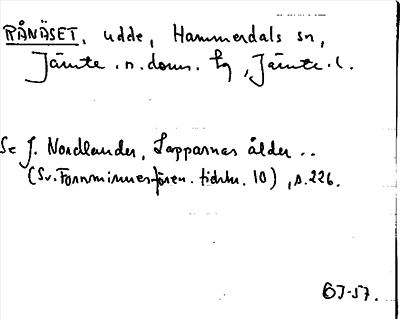 RÅNÄSET, udde, Hammerdals sn,
Jämte. n. doms. tg, Jämtl.
Se J. Nordlander, Lapparnas ålder ..
(Sv. Fornminnesfören. tidskr. 10), s. 226.
BJ-57.